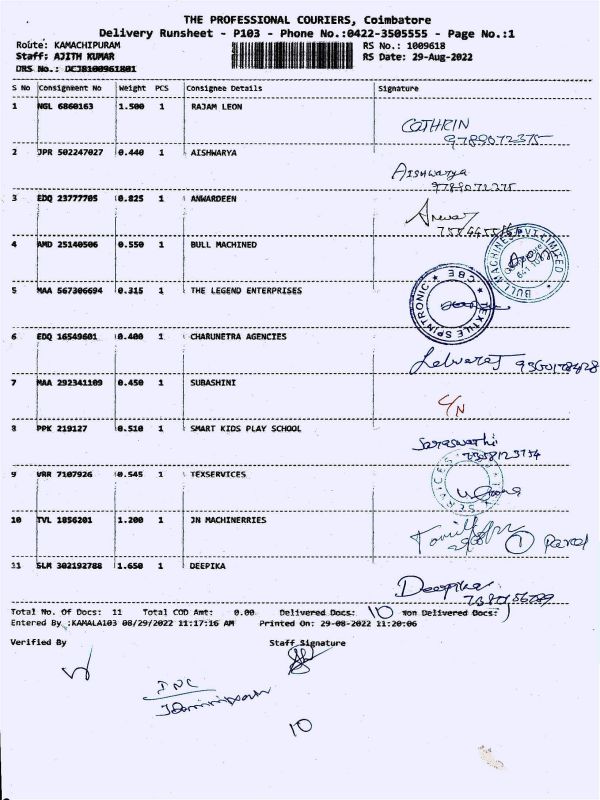 THE PROFESSIONAL COURIERS, Coimbatore
Delivery Runsheet - P103 - Phone No.:0422-3505555 - Page No.:1
Route: KAMACHIPURAM RS No.: 1009618
Staff: AJITH KUMAR RS Date: 29-Aug-2022
DRS No.: DCJB100961801
S No Consignment No Weight PCS Consignee Details Signature
1 NGL 6860163 1.500 1 RAJAM LEON
CATHRIN
9789072375
2 JPR 502247027 0.440 1 AISHWARYA
AISHWARYA
9789072375
3 EDQ 23777705 0.825 1 ANWARDEEN
Anwar
4 AMD 25140506 0.550 1 BULL MACHINED
BULL MACHINES PVT LIMITED
5 MAA 567306694 0.315 1 THE LEGEND ENTERPRISES
CBE TEXTILE SPINTRONIC
6 EDQ 16549601 0.400 1 CHARUNETRA AGENCIES
Selvaraj
7 MAA 292341109 0.450 1 SUBASHINI
C/N
8 PPK 219127 0.510 1 SMART KIDS PLAY SCHOOL
Saraswathi
9 VRR 7107926 0.545 1 TEXSERVICES
10 TVL 1856201 1.200 1 JN MACHINERRIES
1 Parcel
11 SLM 302192788 1.650 1 DEEPIKA
Deepika
Total No. Of Docs: 11 Total COD Amt: 0.00 Delivered Docs: 10 Non Delivered Docs: 1
Entered By :KAMALA103 08/29/2022 11:17:16 AM Printed On: 29-08-2022 11:20:06
Verified By Staff Signature
10